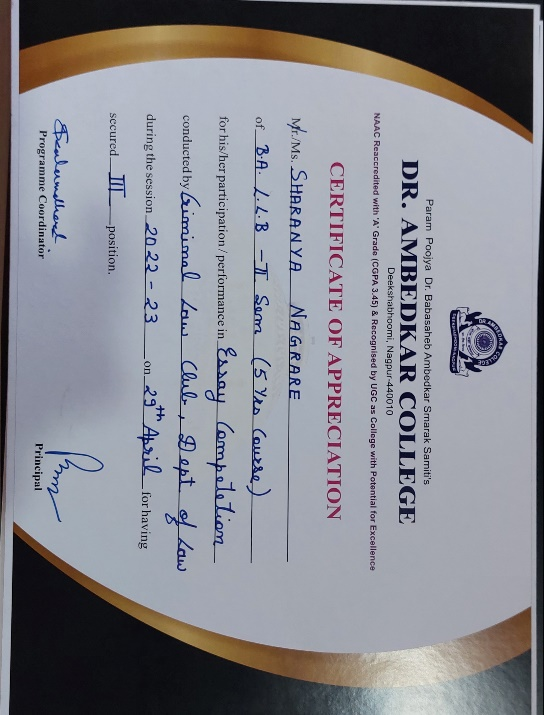 Param Poojya Dr. Babasaheb Ambedkar Smarak Samiti's
DR. AMBEDKAR COLLEGE
Deekshabhoomi, Nagpur-440010
NAAC Reaccredited with 'A' Grade (CGPA 3.45) & Recognised by UGC as College with Potential for Excellence
CERTIFICATE OF APPRECIATION
Mr./Ms. SHARANYA NAGRARE
of B.A. L.L.B - II Sem (5 Yrs Course)
for his/her participation / performance in Essay Competetion
conducted by Criminal Law Club, Dept of Law
during the session 2022-23 on 29th April for having
secured III position.
Programme Coordinator
Principal